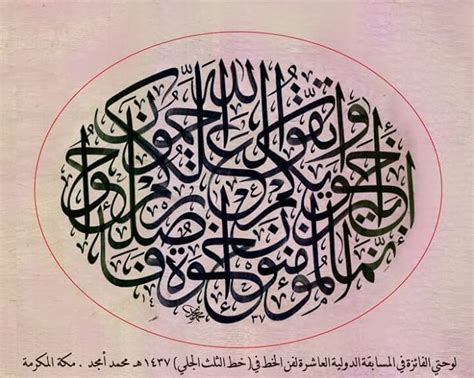 إنما المؤمنون إخوة فأصلحوا بين أخويكم واتقوا الله لعلكم ترحمون
لوحتي الفائزة في المسابقة الدولية العاشرة لفن الخط في (خط الثلث الجلي) ١٤٣٧هـ محمد أمجد . مكة المكرمة